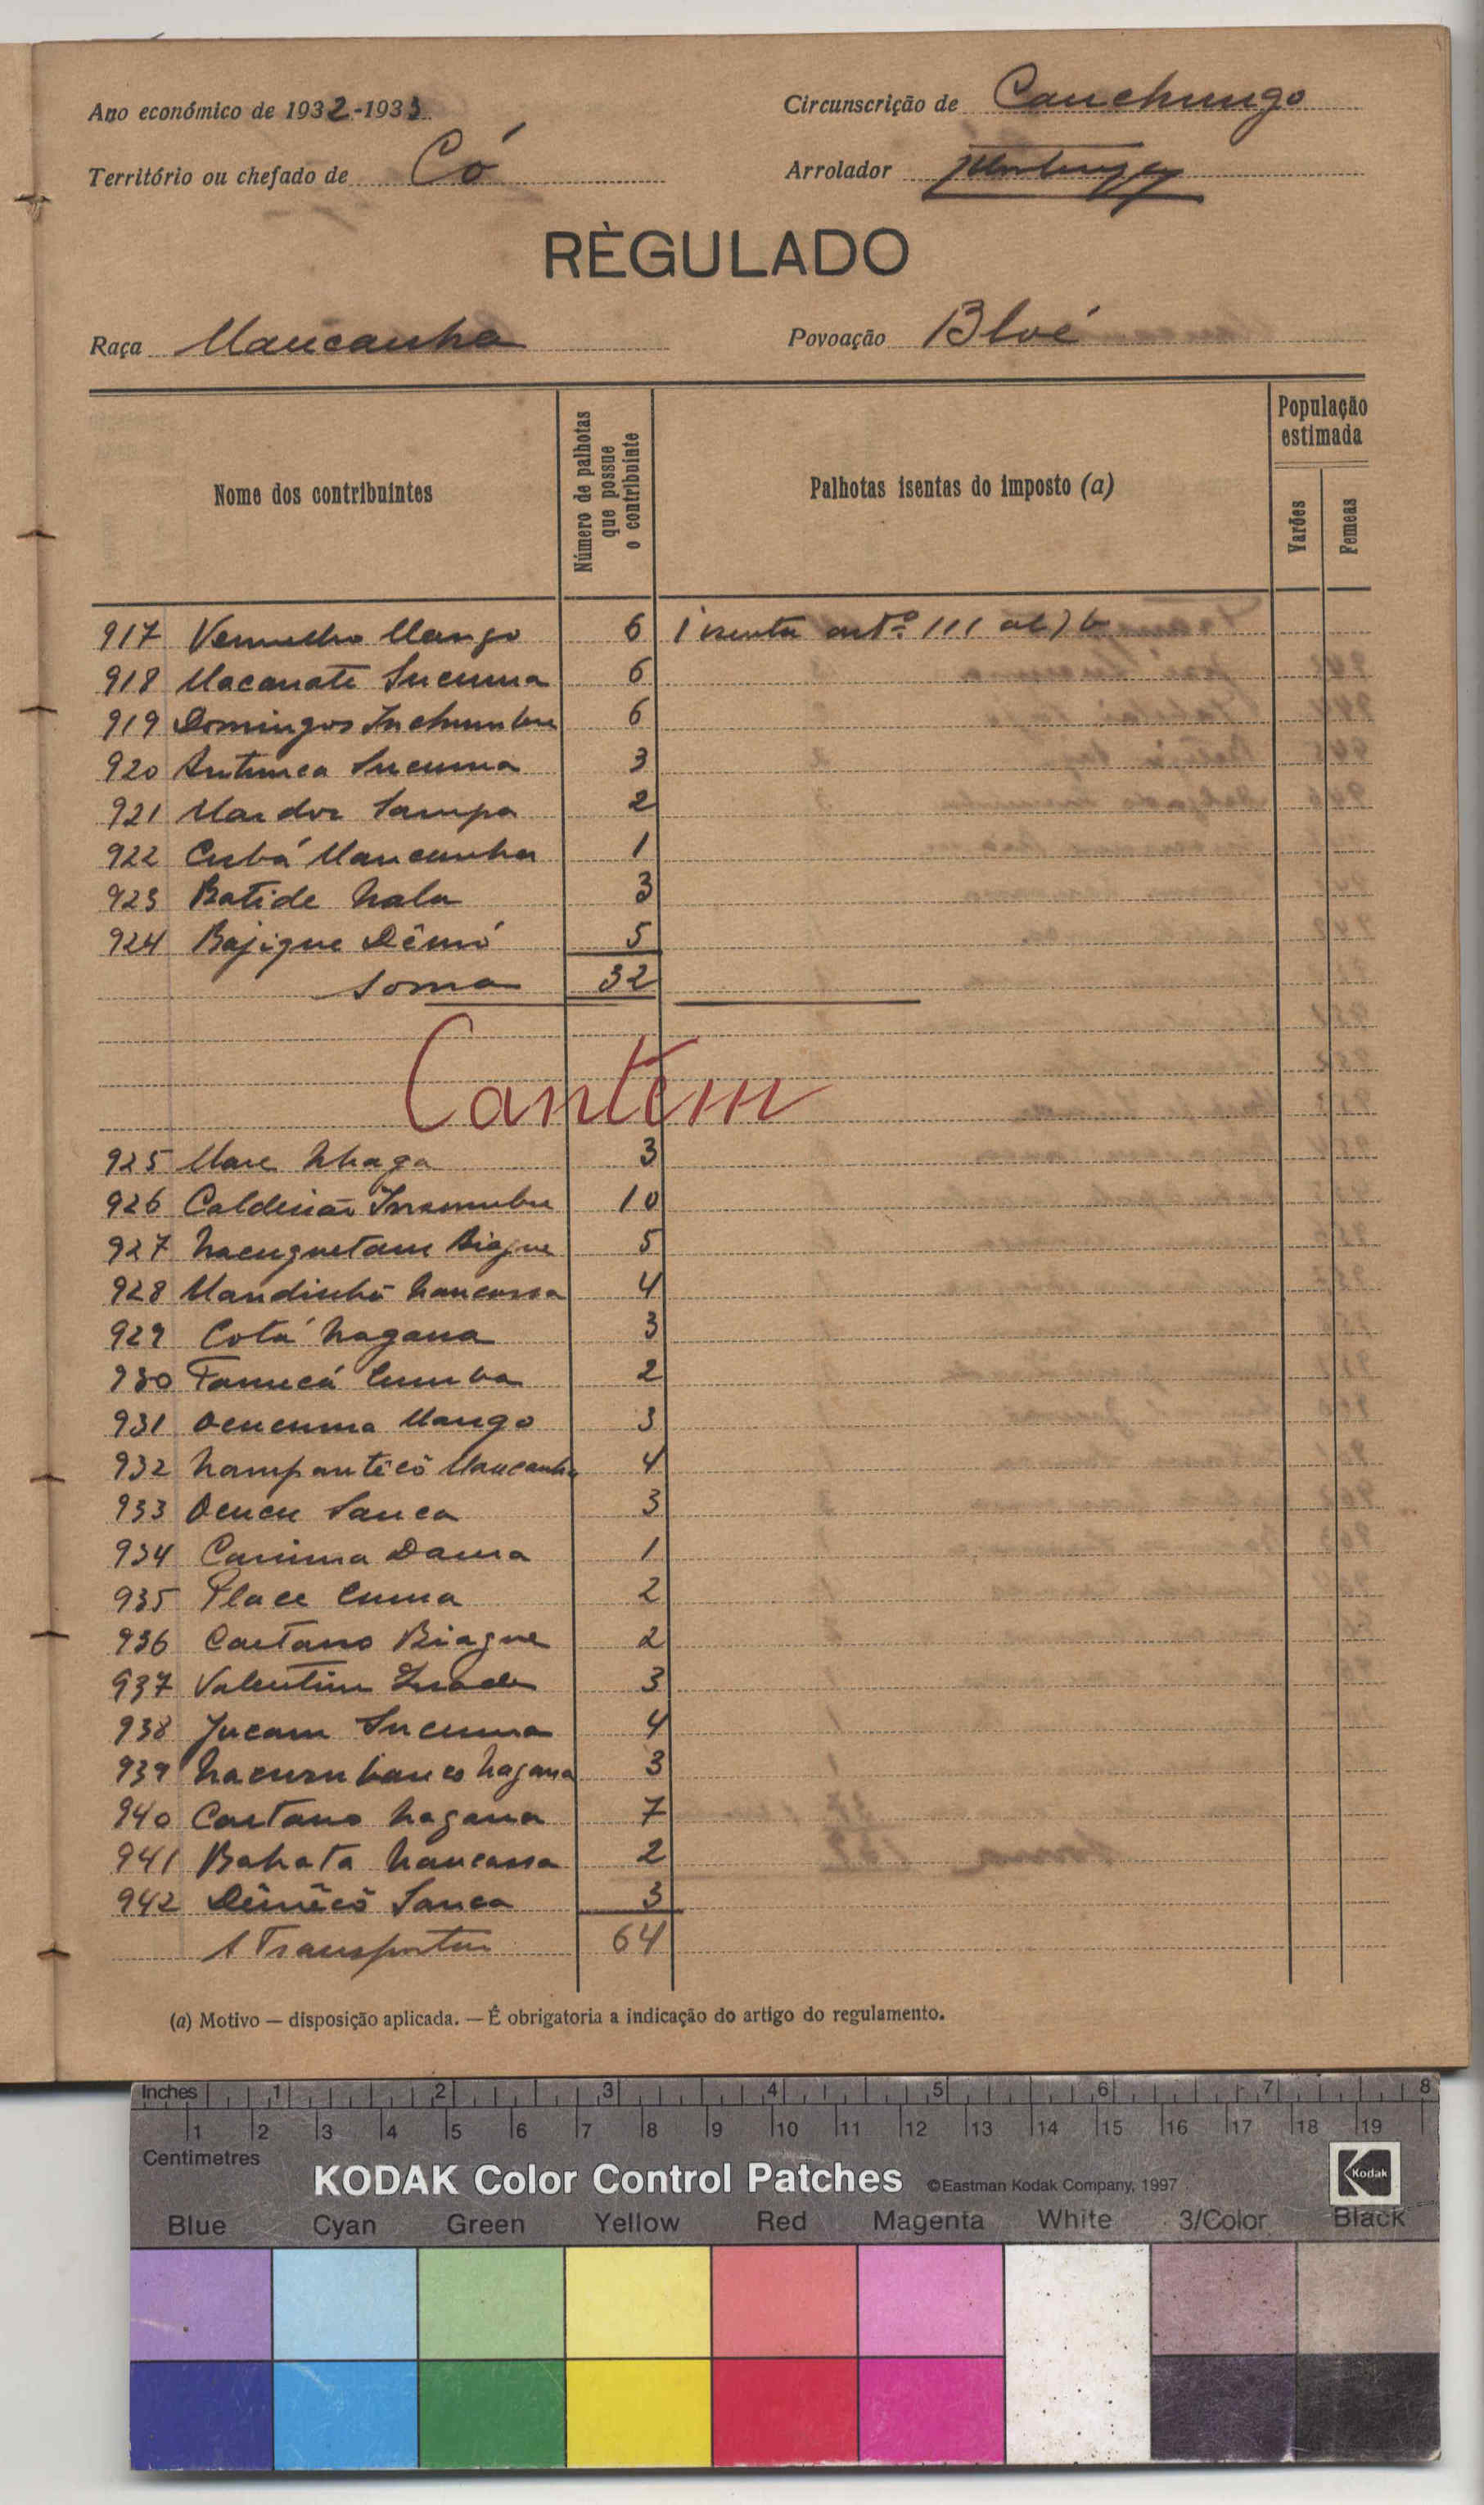 Ano económico de 1932-1933
Circunscrição de Canchungo
Território ou chefado de Có
Arrolador
RÈGULADO
Raça Mancanha
Povoação Bloé
Nome dos contribuintes
Número de palhotas que possue o contribuinte
Palhotas isentas do imposto (a)
População estimada
Varões
Femeas
917 Vermelho Mango 6 1 isenta artº 111 al) b
918 Macanate Incuma 6
919 Domingos Inchumbu 6
920 Incuma 3
921 Mandor Sampa 2
922 Cubá Mancanha 1
923 Batide Nala 3
924 Bajique 5
Soma 32
Cantém
925 Mare Nhaga 3
926 Caldeirão 10
927 Biague 5
928 Mandinhõ Nancassa 4
929 Cotá Nagana 3
930 2
931 Mango 3
932 Mancanha 4
933 Sanca 3
934 1
935 Place 2
936 Caetano Biague 2
937 Valentim 3
938 Jucam Incuma 4
939 Nagana 3
940 Caetano Nagana 7
941 Bahata Nancassa 2
942 Sanca 3
A Transportar 64
(a) Motivo — disposição aplicada. — É obrigatoria a indicação do artigo do regulamento.
Inches 1 2 3 4 5 6 7 8
1 2 3 4 5 6 7 8 9 10 11 12 13 14 15 16 17 18 19
Centimetres
KODAK Color Control Patches ©Eastman Kodak Company, 1997 Kodak
Blue Cyan Green Yellow Red Magenta White 3/Color Black